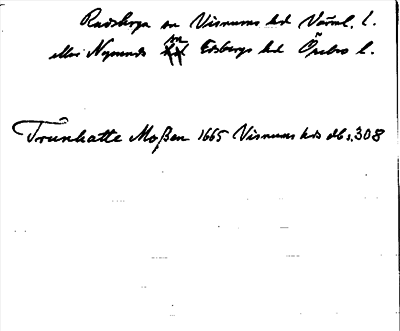 Rudskoga sn Visnums hd Värml. l.
eller Nysunds sn Edsbergs hd Örebro l.
Trunhatte Moßen 1665 Visnums hds db s. 308